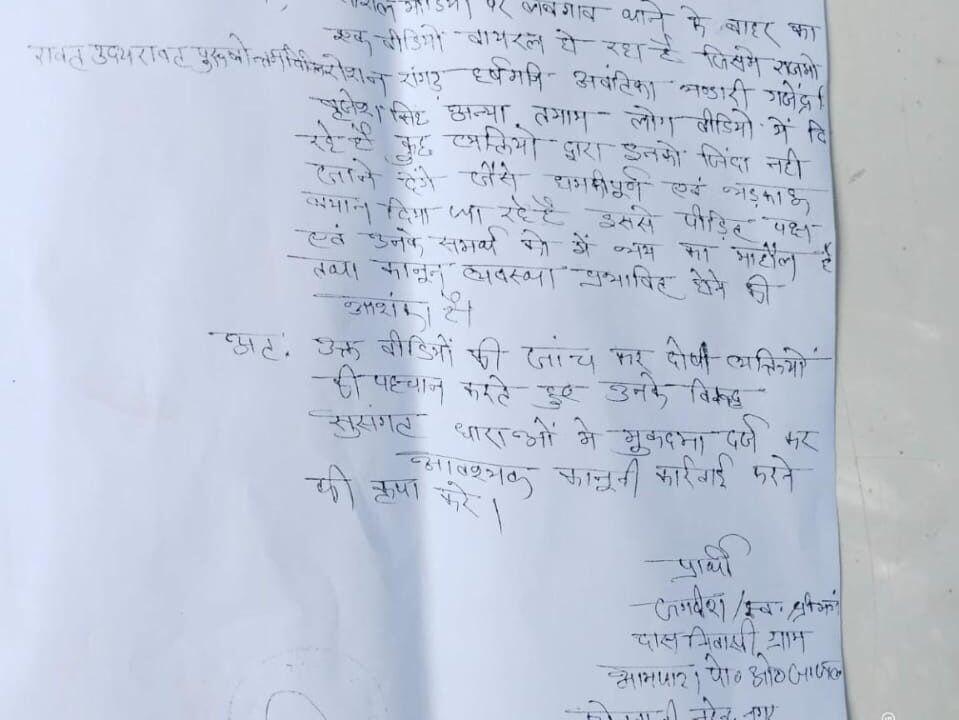 पर लंबगांव थाने के बाहर का
एक वीडियो वायरल हो रहा है जिसमे राजमो
रावत उदय रावत पुरुषोत्तम रोशन रांगड़ हर्षमणि अवंतिका भण्डारी गजेंद्र
बृजेश सिंह अन्या तमाम लोग वीडियो में दि
रहे है कुछ व्यक्तियो द्वारा इनको जिंदा नही
जाने देंगे जैसे धमकीपूर्ण एवं भड़काऊ
बयान दिया जा रहे है इससे पीड़ित पक्ष
एवं उनके समर्थ को में भय का माहौल है
तथा कानून व्यवस्था प्रभावित होने की
आशंका है।
अतः उक्त वीडियों की जांच कर दोषी व्यक्तियों
की पहचान करते हुए उनके विरूद्ध
सुसंगत धाराओं मे मुकदमा दर्ज कर
आवश्यक कानूनी कार्रवाई करने
की कृपा करे।
प्रार्थी
जगदीश / स्व. श्री
दास निवासी ग्राम
आमपाटा पो० ओ०